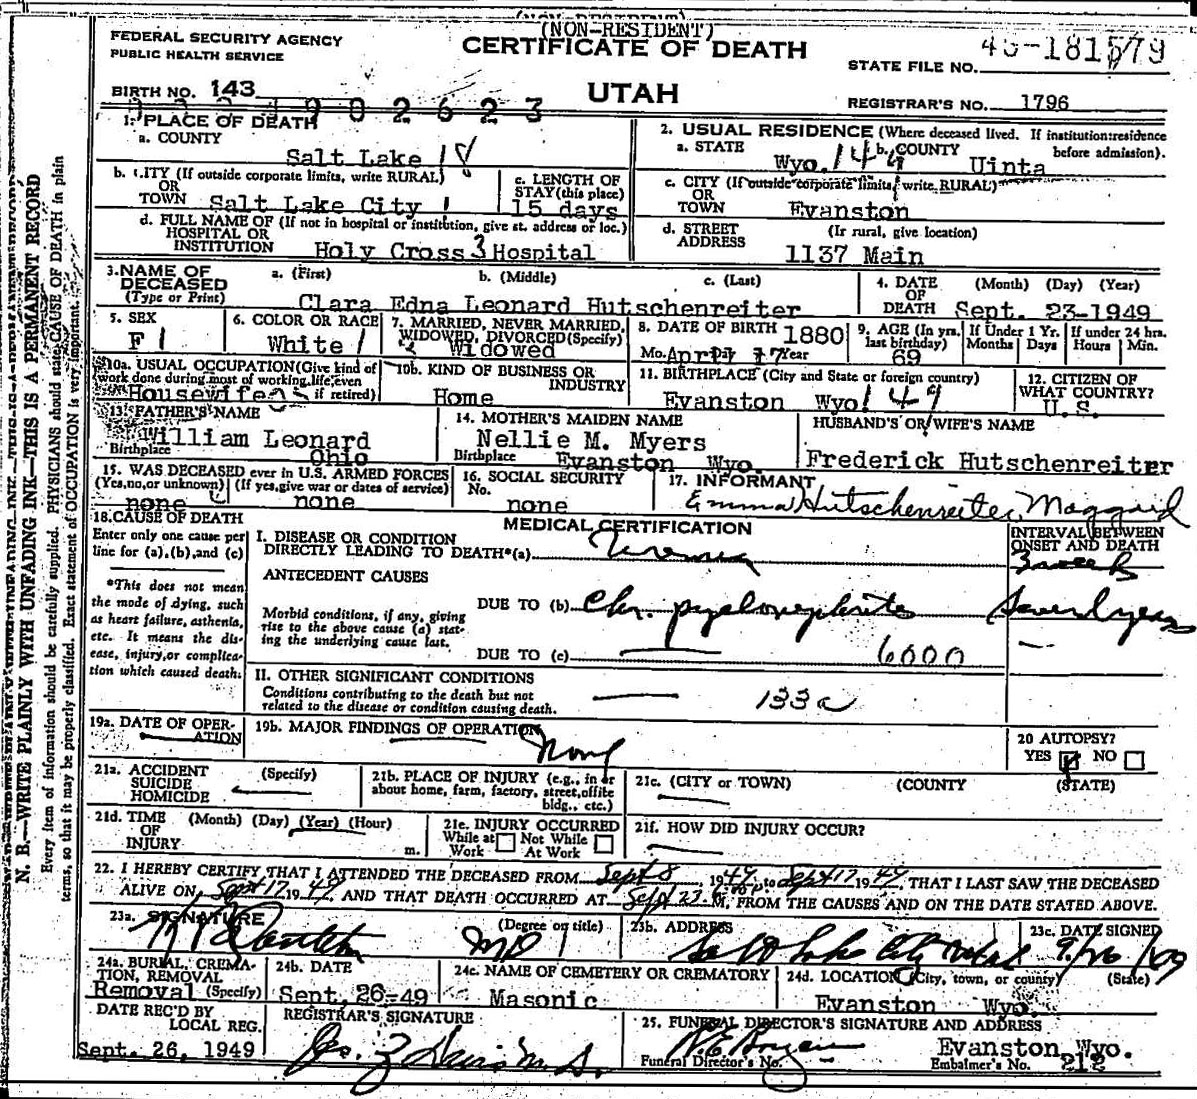 (NON-RESIDENT)
FEDERAL SECURITY AGENCY
PUBLIC HEALTH SERVICE
CERTIFICATE OF DEATH
UTAH
STATE FILE NO.
BIRTH NO. 143
REGISTRAR'S NO. 1796
1. PLACE OF DEATH
a. COUNTY
Salt Lake 18
2. USUAL RESIDENCE (Where deceased lived. If institution: residence before admission).
a. STATE Wyo. 149 b. COUNTY Uinta
b. CITY (If outside corporate limits, write RURAL)
OR
TOWN Salt Lake City
c. LENGTH OF
STAY (this place)
15 days
c. CITY (If outside corporate limits, write RURAL)
OR
TOWN Evanston
d. FULL NAME OF (If not in hospital or institution, give st. address or loc.)
HOSPITAL OR
INSTITUTION Holy Cross 3 Hospital
d. STREET (If rural, give location)
ADDRESS 1137 Main
3. NAME OF
DECEASED
(Type or Print)
a. (First) b. (Middle) c. (Last)
Clara Edna Leonard Hutschenreiter
4. DATE (Month) (Day) (Year)
OF
DEATH Sept. 23-1949
5. SEX
F 1
6. COLOR OR RACE
White 1
7. MARRIED, NEVER MARRIED,
WIDOWED, DIVORCED (Specify)
Widowed
8. DATE OF BIRTH 1880
Mo. April 17 Year
9. AGE (In yrs. last birthday)
69
If Under 1 Yr.
Months Days
If under 24 hrs.
Hours Min.
10a. USUAL OCCUPATION (Give kind of
work done during most of working life, even
if retired)
Housewife
10b. KIND OF BUSINESS OR
INDUSTRY
Home
11. BIRTHPLACE (City and State or foreign country)
Evanston Wyo. 149
12. CITIZEN OF
WHAT COUNTRY?
U.S.
13. FATHER'S NAME
William Leonard
Birthplace Ohio
14. MOTHER'S MAIDEN NAME
Nellie M. Myers
Birthplace Evanston Wyo.
HUSBAND'S OR WIFE'S NAME
Frederick Hutschenreiter
15. WAS DECEASED ever in U.S. ARMED FORCES
(Yes, no, or unknown) (If yes, give war or dates of service)
none none
16. SOCIAL SECURITY
No.
none
17. INFORMANT
Emma Hutschenreiter Maggard
18. CAUSE OF DEATH
Enter only one cause per
line for (a), (b), and (c)
*This does not mean
the mode of dying, such
as heart failure, asthenia,
etc. It means the dis-
ease, injury, or complica-
tion which caused death.
MEDICAL CERTIFICATION
I. DISEASE OR CONDITION
DIRECTLY LEADING TO DEATH*(a) Uremia
INTERVAL BETWEEN
ONSET AND DEATH
3 weeks
ANTECEDENT CAUSES
Morbid conditions, if any, giving
rise to the above cause (a) stat-
ing the underlying cause last.
DUE TO (b) Chr. pyelonephritis Several years
DUE TO (c) 6000
II. OTHER SIGNIFICANT CONDITIONS
Conditions contributing to the death but not
related to the disease or condition causing death.
133a
19a. DATE OF OPER-
ATION
19b. MAJOR FINDINGS OF OPERATION
None
20 AUTOPSY?
YES NO
21a. ACCIDENT (Specify)
SUICIDE
HOMICIDE
21b. PLACE OF INJURY (e.g., in or
about home, farm, factory, street, office
bldg., etc.)
21c. (CITY or TOWN) (COUNTY) (STATE)
21d. TIME (Month) (Day) (Year) (Hour)
OF
INJURY m.
21e. INJURY OCCURRED
While at Work Not While At Work
21f. HOW DID INJURY OCCUR?
22. I HEREBY CERTIFY THAT I ATTENDED THE DECEASED FROM Sept 8 1949, to Sept 17 1949, THAT I LAST SAW THE DECEASED
ALIVE ON Sept 17 1949, AND THAT DEATH OCCURRED AT Sept 23 M, FROM THE CAUSES AND ON THE DATE STATED ABOVE.
23a. SIGNATURE (Degree or title) MD
23b. ADDRESS
Salt Lake City Utah
23c. DATE SIGNED
9/26/49
24a. BURIAL, CREMA-
TION, REMOVAL
Removal (Specify)
24b. DATE
Sept. 26-49
24c. NAME OF CEMETERY OR CREMATORY
Masonic
24d. LOCATION (City, town, or county) (State)
Evanston Wyo.
DATE REC'D BY
LOCAL REG.
Sept. 26, 1949
REGISTRAR'S SIGNATURE
25. FUNERAL DIRECTOR'S SIGNATURE AND ADDRESS
Evanston, Wyo.
Funeral Director's No.
Embalmer's No. 212
N. B.—WRITE PLAINLY WITH UNFADING INK—THIS IS A PERMANENT RECORD
Every item of information should be carefully supplied. PHYSICIANS should state CAUSE OF DEATH in plain
terms, so that it may be properly classified. Exact statement of OCCUPATION is very important.